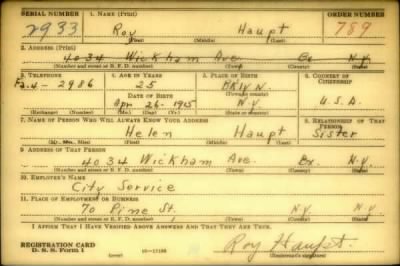 SERIAL NUMBER 1. NAME (Print) ORDER NUMBER
2933 Roy Haupt 789
(First) (Middle) (Last)
2. ADDRESS (Print)
4034 Wickham Ave. Bx. N.Y.
(Number and street or R. F. D. number) (Town) (County) (State)
3. TELEPHONE 4. AGE IN YEARS 5. PLACE OF BIRTH 6. COUNTRY OF CITIZENSHIP
Fa.4-2986 25 BKLYN.
DATE OF BIRTH (Town or county)
Apr 26-1915 N.Y. U.S.A.
(Exchange) (Number) (Mo.) (Day) (Yr.) (State or country)
7. NAME OF PERSON WHO WILL ALWAYS KNOW YOUR ADDRESS 8. RELATIONSHIP OF THAT PERSON
Helen Haupt Sister
(Mr., Mrs., Miss) (First) (Middle) (Last)
9. ADDRESS OF THAT PERSON
4034 Wickham Ave. Bx. N.Y.
(Number and street or R. F. D. number) (Town) (County) (State)
10. EMPLOYER'S NAME
City Service
11. PLACE OF EMPLOYMENT OR BUSINESS
70 Pine St. N.Y. N.Y.
(Number and street or R. F. D. number) (Town) (County) (State)
I AFFIRM THAT I HAVE VERIFIED ABOVE ANSWERS AND THAT THEY ARE TRUE.
REGISTRATION CARD
D. S. S. Form 1 (over) Roy Haupt.
(Registrant's signature)